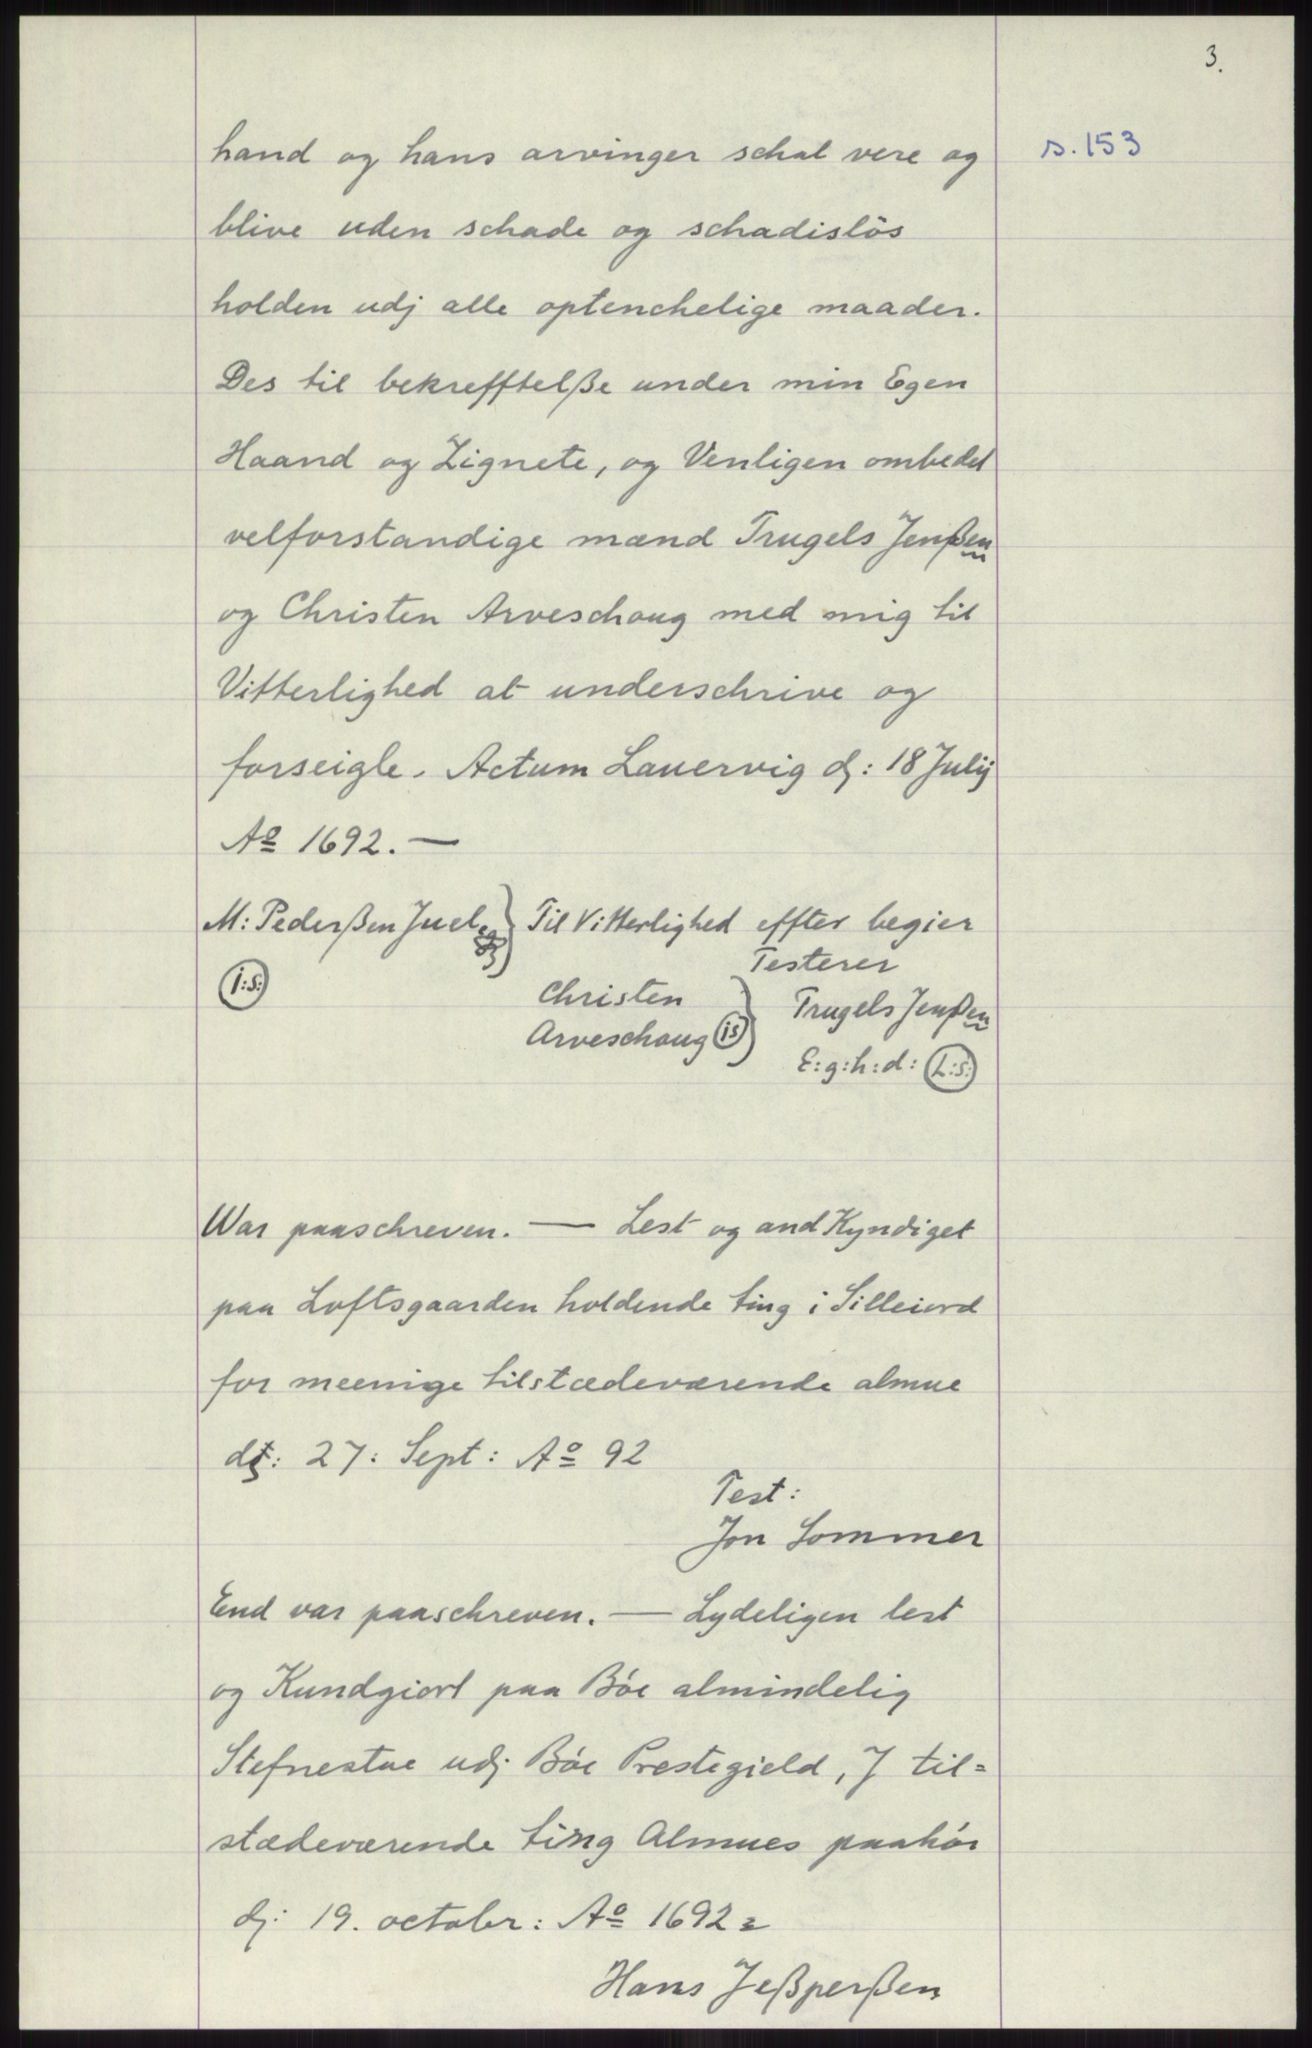 3.
hand og hans arvinger schal vere og
s. 153
blive uden schade og schadisløs
holden udj alle optenchelige maader.
Des til bekrefftelße under min Egen
Haand og Zignete, og Venligen ombedet
velforstandige mænd Trugels Jenßen
og Christen Arveschoug med mig til
Vitterlighed at underschrive og
forseigle. Actum Lauervig dj: 18 Julij
Aº 1692. —
M: Pederßen Juel } Til Vitterlighed effter begier
Testerer
(l:s:)
Christen
Arveschoug (ls) }
Trugels Jenßen
E:g:h:d: (L:S:)
War paaschreven. — Lest og and Kyndiget
paa Loftsgaarden holdende ting i Silleiord
for meenige tilstædeværende almue
27: Sept: Aº 92
Test:
Jon Sommer
End var paaschreven. — Lydeligen lest
og Kundgiort paa Bøe almindelig
Stefnestue udj Bøe Prestegield, J til=
stædeværende ting Almues paahør
dj: 19. octobr: Aº 1692=
Hans Jeßperßen